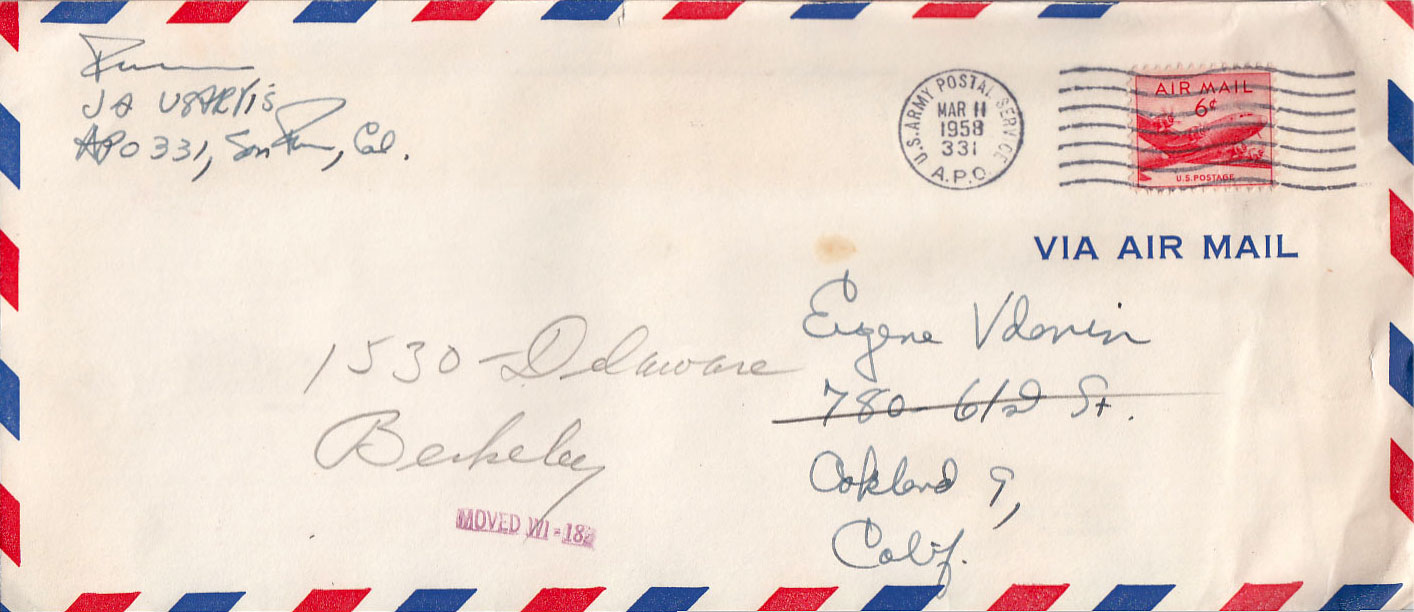 JA USARYIS
APO 331, San Fran, Cal.
U.S. ARMY POSTAL SERVICE
MAR 11
1958
331
A.P.O.
AIR MAIL
6¢
U.S. POSTAGE
VIA AIR MAIL
Eugene Vdovin
780-61st St.
Oakland 9,
Calif.
1530 Delaware
Berkeley
MOVED